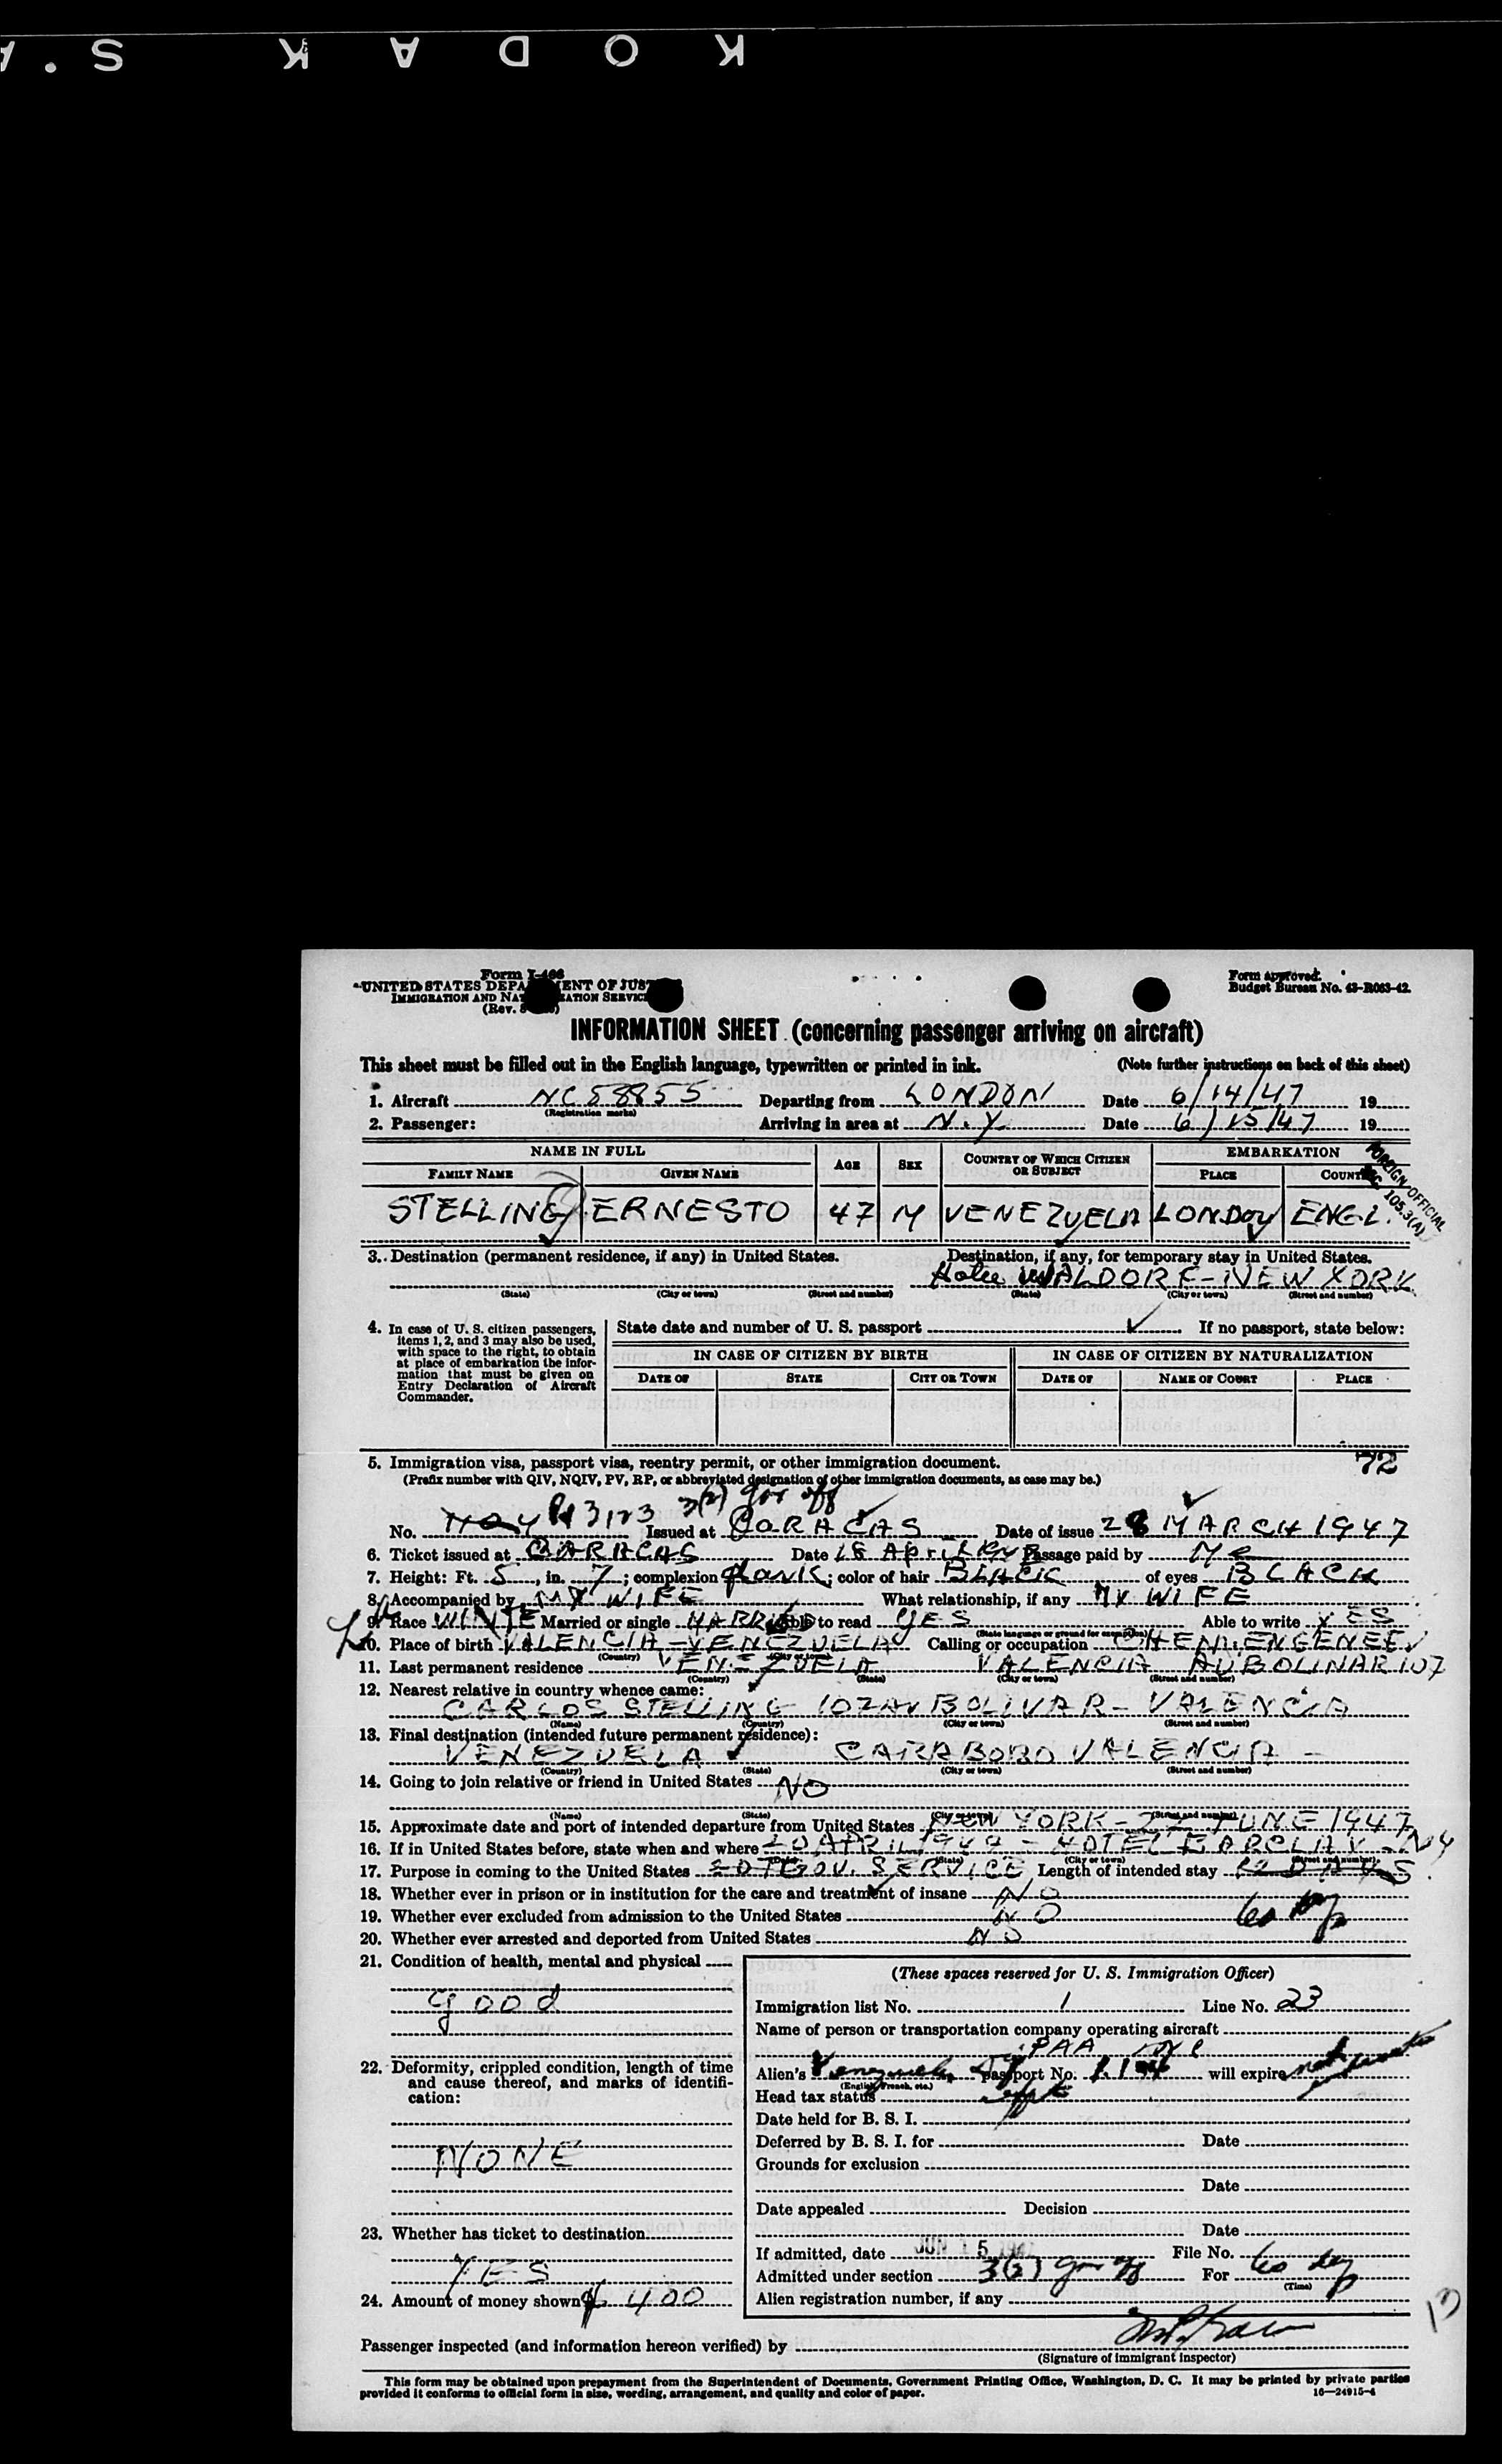 KODAK S.A
Form I-466
UNITED STATES DEPARTMENT OF JUST
IMMIGRATION AND NATURALIZATION SERVICE
(Rev.
Form approved.
Budget Bureau No. 43-R063-42.
INFORMATION SHEET (concerning passenger arriving on aircraft)
This sheet must be filled out in the English language, typewritten or printed in ink. (Note further instructions on back of this sheet)
1. Aircraft NC58855 Departing from LONDON Date 6/14/47 19
(Registration marks)
2. Passenger: Arriving in area at N.Y. Date 6/15/47 19
NAME IN FULL AGE SEX COUNTRY OF WHICH CITIZEN OR SUBJECT EMBARKATION
FAMILY NAME GIVEN NAME PLACE COUNT
FOREIGN OFFICIAL
SEC. 105.3(A)
STELLING ERNESTO 47 M VENEZUELA LONDON ENGL.
3. Destination (permanent residence, if any) in United States. Destination, if any, for temporary stay in United States.
Hotel WALDORF-NEW YORK
(State) (City or town) (Street and number) (State) (City or town) (Street and number)
4. In case of U. S. citizen passengers,
items 1, 2, and 3 may also be used,
with space to the right, to obtain
at place of embarkation the infor-
mation that must be given on
Entry Declaration of Aircraft
Commander.
State date and number of U. S. passport If no passport, state below:
IN CASE OF CITIZEN BY BIRTH IN CASE OF CITIZEN BY NATURALIZATION
DATE OF STATE CITY OR TOWN DATE OF NAME OF COURT PLACE
72
5. Immigration visa, passport visa, reentry permit, or other immigration document.
(Prefix number with QIV, NQIV, PV, RP, or abbreviated designation of other immigration documents, as case may be.)
3(2) gov off
No. 3123 Issued at CARACAS Date of issue 28 MARCH 1947
6. Ticket issued at CARACAS Date 18 April Passage paid by Me
7. Height: Ft. 5, in. 7; complexion ; color of hair BLACK of eyes BLACK
8. Accompanied by MY WIFE What relationship, if any MY WIFE
9. Race WINTE Married or single MARRIED Able to read YES Able to write YES
(State language or ground for exemption)
10. Place of birth VALENCIA-VENEZUELA Calling or occupation CHEM. ENGENEER
(Country) (City or town)
11. Last permanent residence VENEZUELA VALENCIA AV BOLIVAR 107
(Country) (State) (City or town) (Street and number)
12. Nearest relative in country whence came:
CARLOS STELLING 107 AV BOLIVAR - VALENCIA
(Name) (Country) (City or town) (Street and number)
13. Final destination (intended future permanent residence):
VENEZUELA CARABOBO VALENCIA -
(Country) (State) (City or town) (Street and number)
14. Going to join relative or friend in United States NO
(Name) (State) (City or town) (Street and number)
15. Approximate date and port of intended departure from United States NEW YORK - 22 JUNE 1947
16. If in United States before, state when and where 20 APRIL 1947 - HOTEL BARCLAY - NY
(State) (City or town) (Street and number)
17. Purpose in coming to the United States GOV. SERVICE Length of intended stay DAYS
18. Whether ever in prison or in institution for the care and treatment of insane NO
19. Whether ever excluded from admission to the United States NO 60 dy
20. Whether ever arrested and deported from United States NO
21. Condition of health, mental and physical
good
22. Deformity, crippled condition, length of time
and cause thereof, and marks of identifi-
cation:
NONE
23. Whether has ticket to destination
YES
24. Amount of money shown $ 400
(These spaces reserved for U. S. Immigration Officer)
Immigration list No. 1 Line No. 23
Name of person or transportation company operating aircraft
PAA
Alien's Venezuela passport No. will expire
(English, French, etc.)
Head tax status
Date held for B. S. I.
Deferred by B. S. I. for Date
Grounds for exclusion
Date
Date appealed Decision
Date
If admitted, date JUN 15 194 File No.
Admitted under section 3(2) gov off For 60 dy
(Time)
Alien registration number, if any
13
Passenger inspected (and information hereon verified) by
(Signature of immigrant inspector)
This form may be obtained upon prepayment from the Superintendent of Documents, Government Printing Office, Washington, D. C. It may be printed by private parties
provided it conforms to official form in size, wording, arrangement, and quality and color of paper. 16—24915-4